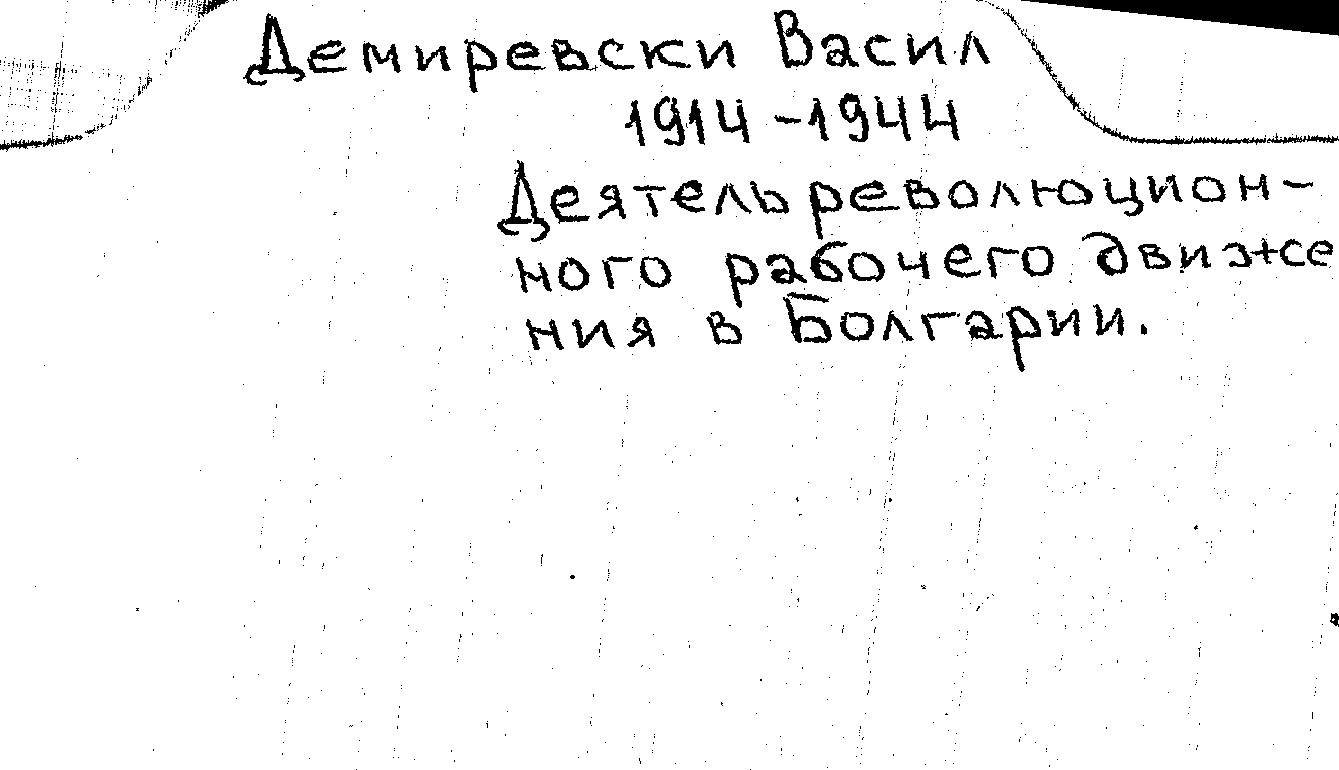 Демиревски Васил
1914-1944
Деятель революцион-
ного рабочего движе
ния в Болгарии.